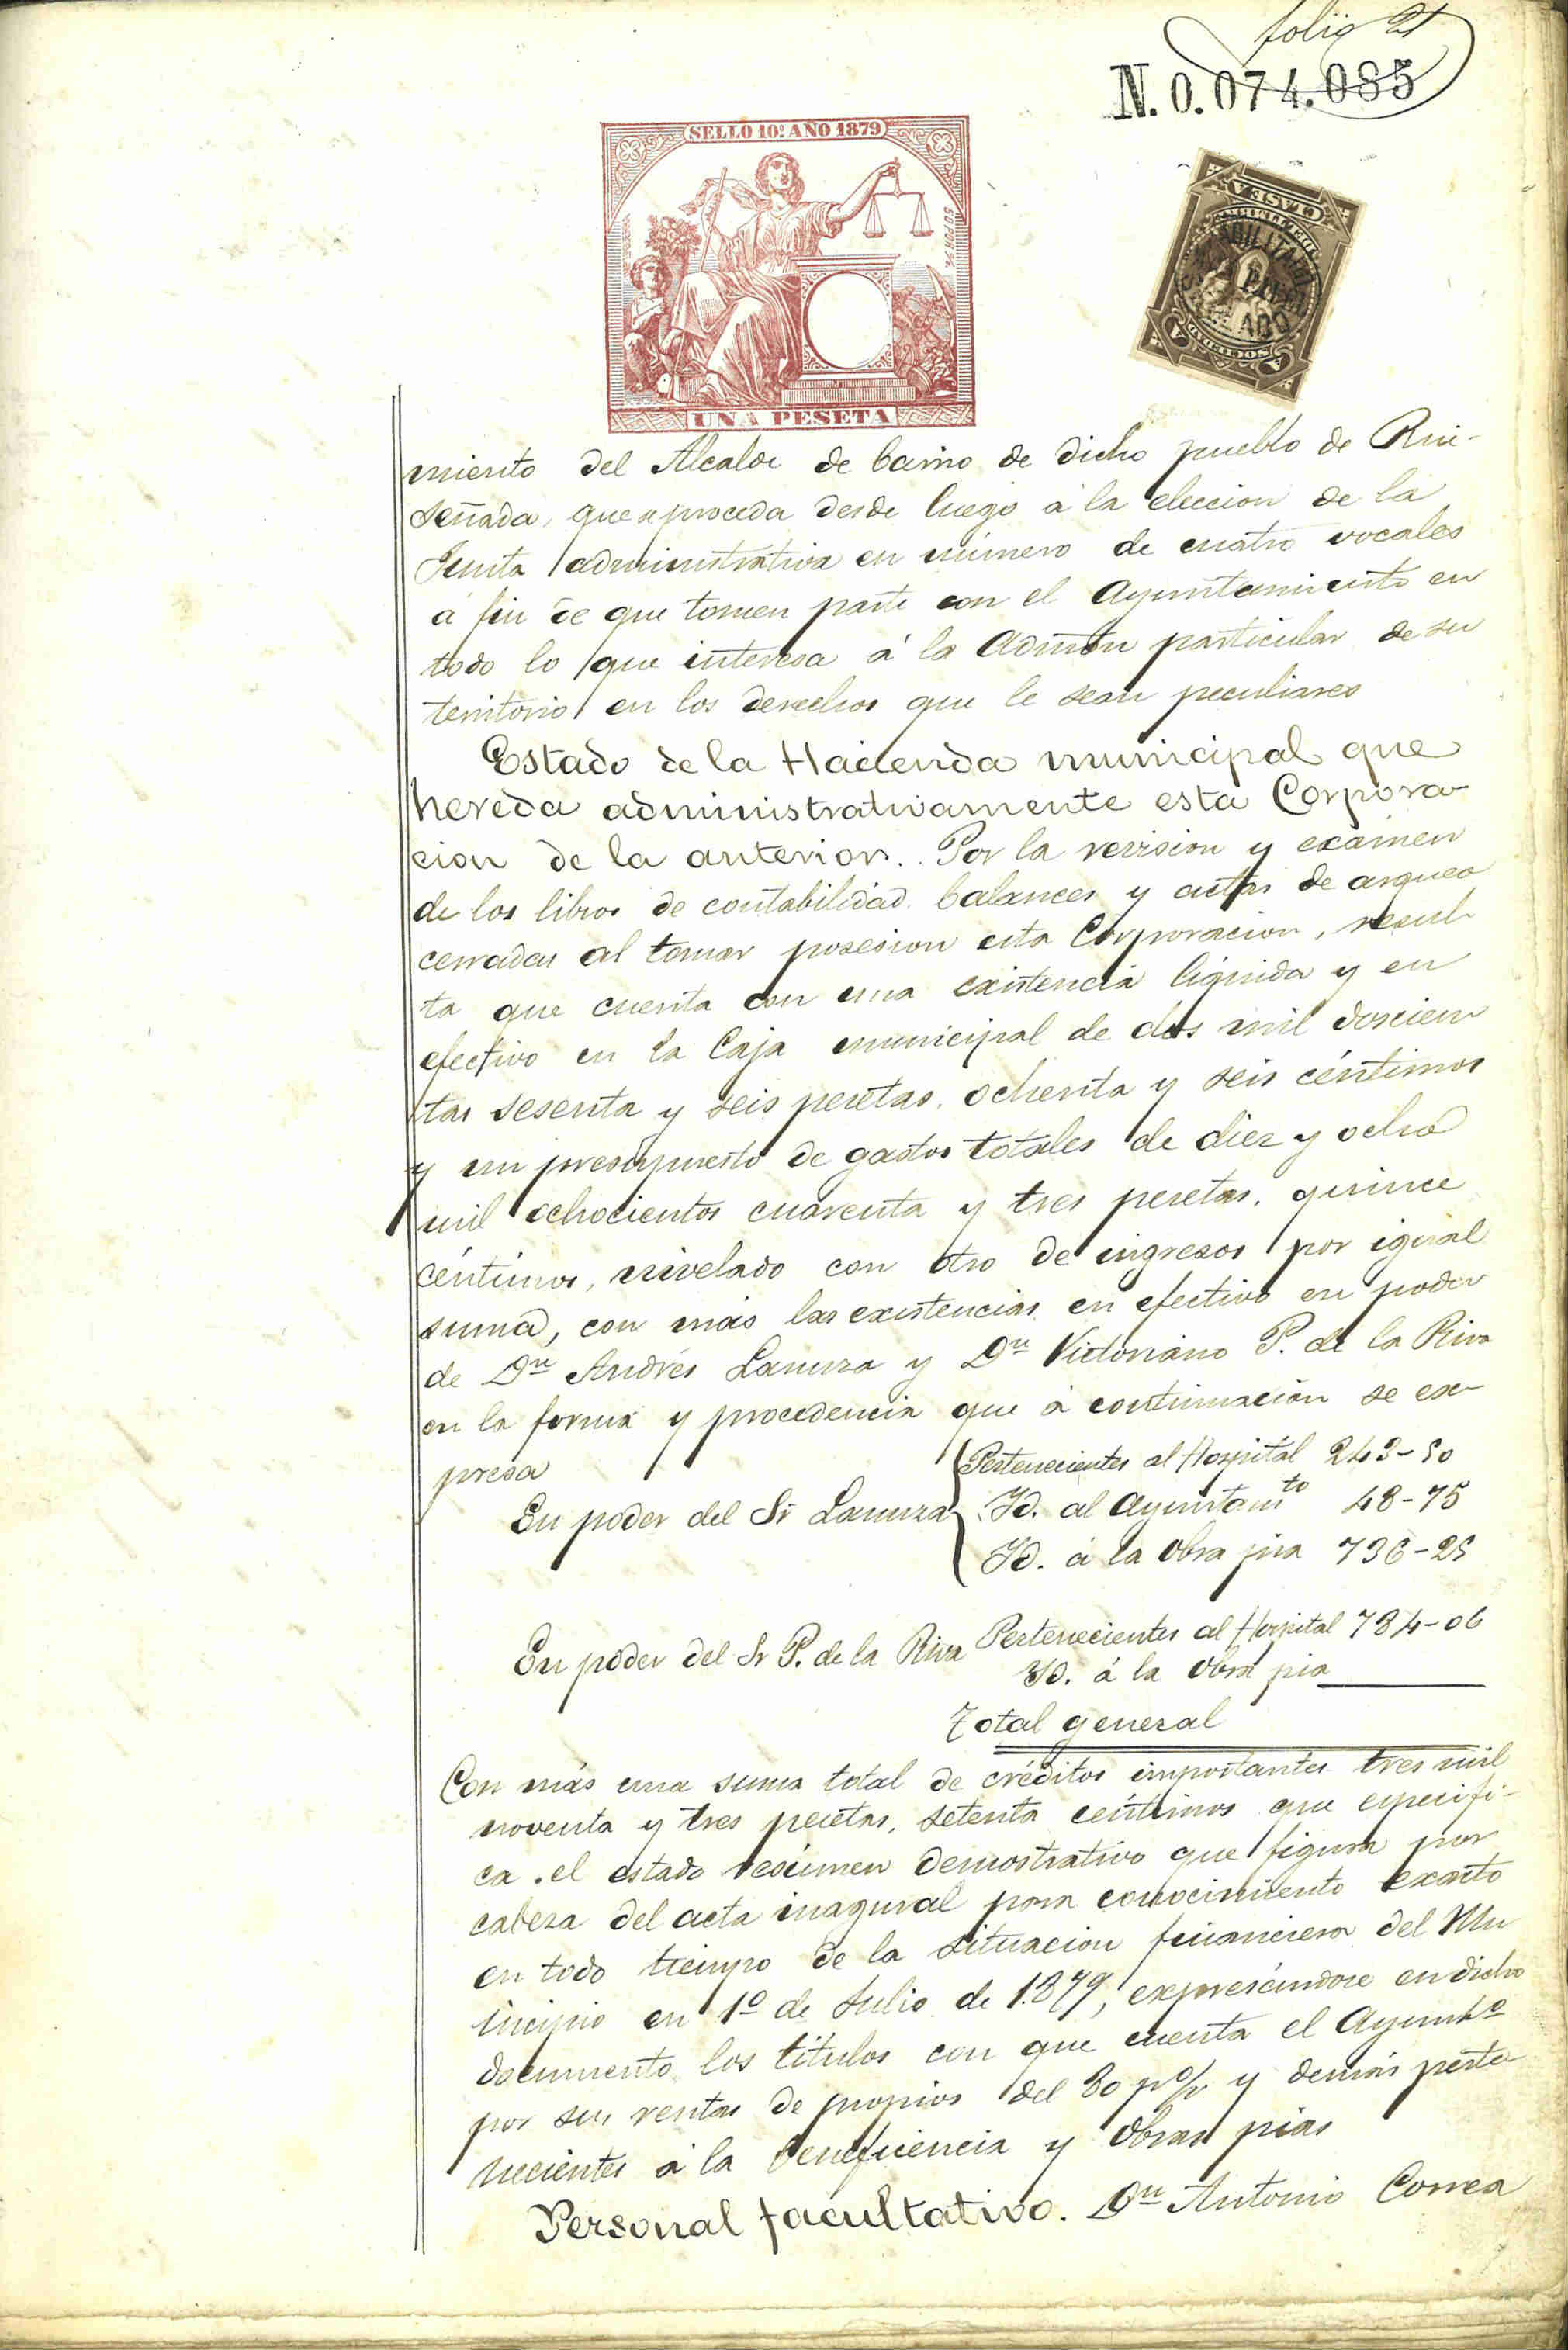 folio 21
N. 0.074.085
SELLO 10º AÑO 1879
CLASE A
HABILITADO
SOCIEDAD
UNA PESETA
miento del Alcalde de barrio de dicho pueblo de Rui-
señada, que se proceda desde luego á la eleccion de la
Junta administrativa en número de cuatro vocales
á fin de que tomen parte con el Ayuntamiento en
todo lo que interesa á la Admon particular de su
territorio en los derechos que le sean peculiares
Estado de la Hacienda municipal que
hereda administrativamente esta Corpora-
cion de la anterior. Por la revision y exámen
de los libros de contabilidad, balances y actas de arqueo
cerradas al tomar posesion esta Corporacion, resul-
ta que cuenta con una existencia líquida y en
efectivo en la Caja municipal de dos mil doscien-
tas sesenta y seis pesetas, ochenta y seis céntimos
y un presupuesto de gastos totales de diez y ocho
mil ochocientos cuarenta y tres pesetas, quince
céntimos, nivelado con otro de ingresos por igual
suma, con más las existencias en efectivo en poder
de Dn Andrés Lanuza y Dn Victoriano P. de la Riva
en la forma y procedencia que á continuacion se ex-
presa
Pertenecientes al Hospital 243-50
En poder del Sr Lanuza Id. al Ayuntamto 48-75
Id. á la Obra pia 736-25
En poder del Sr P. de la Riva Pertenecientes al Hospital 784-06
Id. á la Obra pia
Total general
Con más una suma total de créditos importantes tres mil
noventa y tres pesetas, setenta céntimos que especifi-
ca el estado resúmen demostrativo que figura por
cabeza del acta inagural para conocimiento exacto
en todo tiempo de la situacion financiera del Mu
nicipio en 1º de Julio de 1.879, expresándose en dicho
documento los títulos con que cuenta el Ayuntº
por sus rentas de propios del 80 p% y demás perte
necientes á la beneficencia y Obras pias
Personal facultativo. Dn Antonio Correa